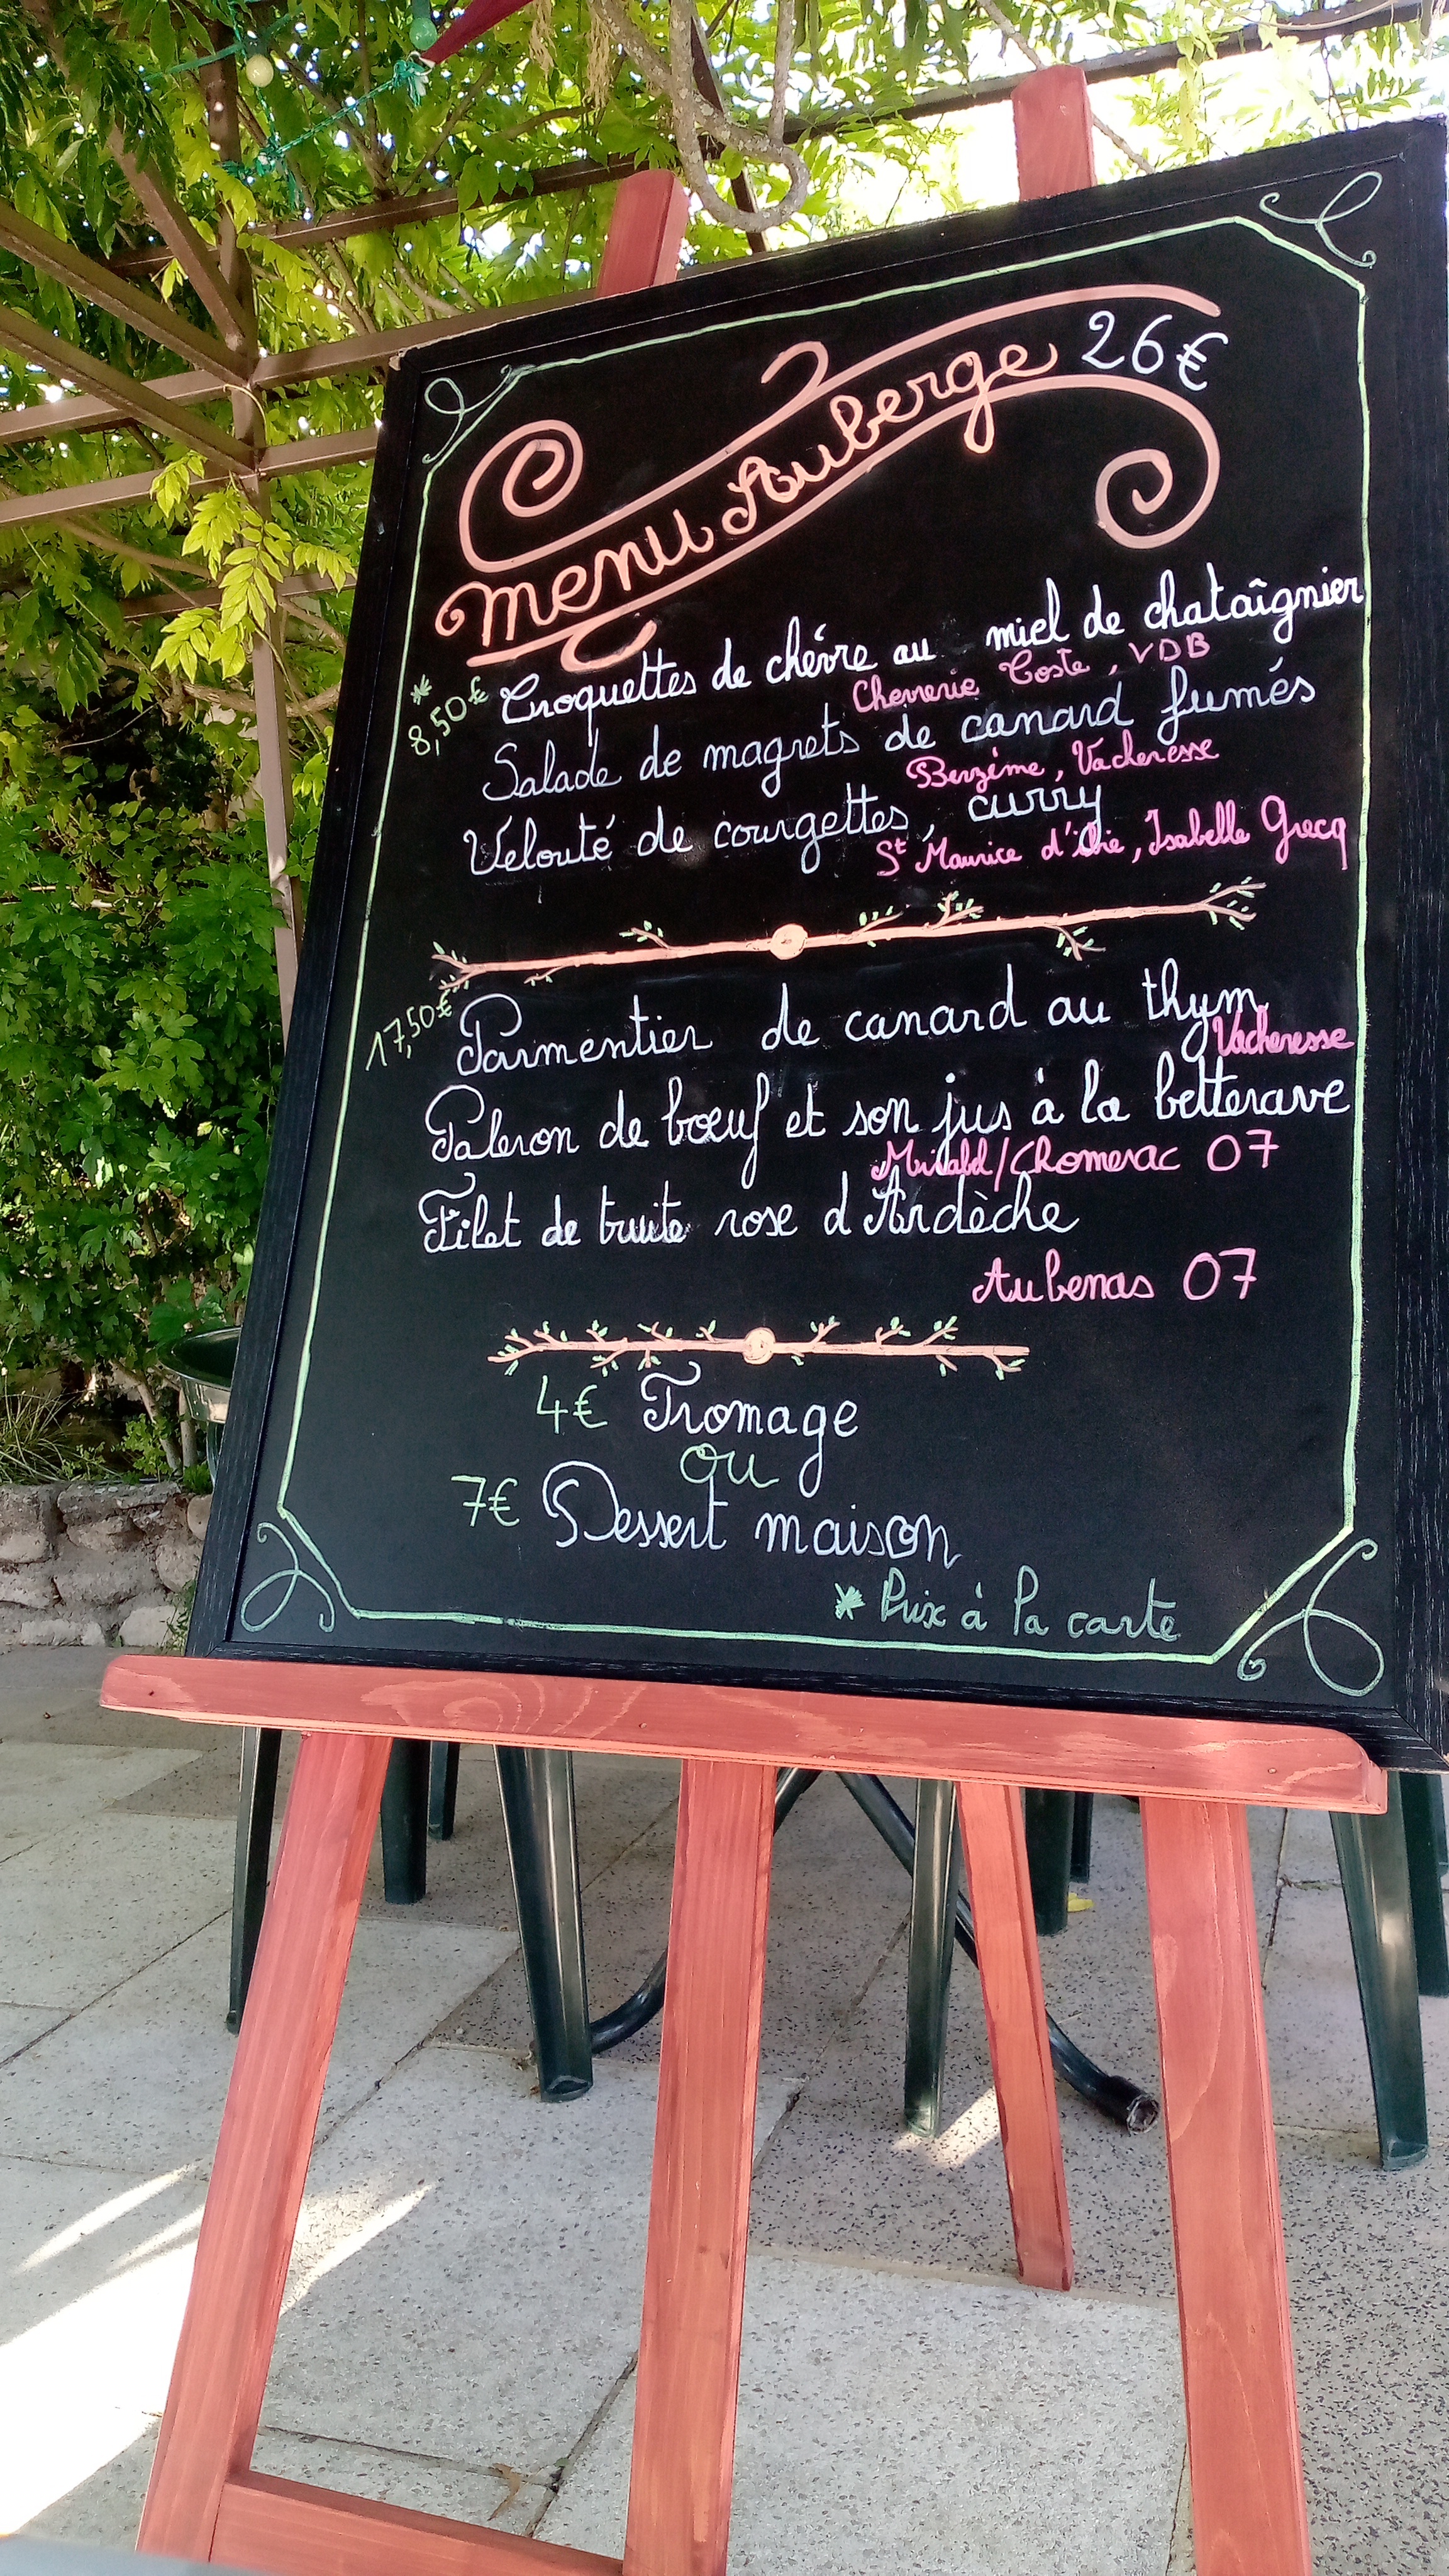 Menu Auberge 26€
* 8,50€ Croquettes de chévre au miel de chataîgnier
Chevrerie Coste, VDB
Salade de magrets de canard fumés
Berzème, Vacheresse
Velouté de courgettes, curry
St Maurice d'ibie, Isabelle Grecq
17,50€ Parmentier de canard au thym
Vacheresse
Paleron de bœuf et son jus à la betterave
Mirabel/Chomerac 07
Filet de truite rose d'Ardèche
Aubenas 07
4€ Fromage
ou
7€ Dessert maison
* Prix à la carte